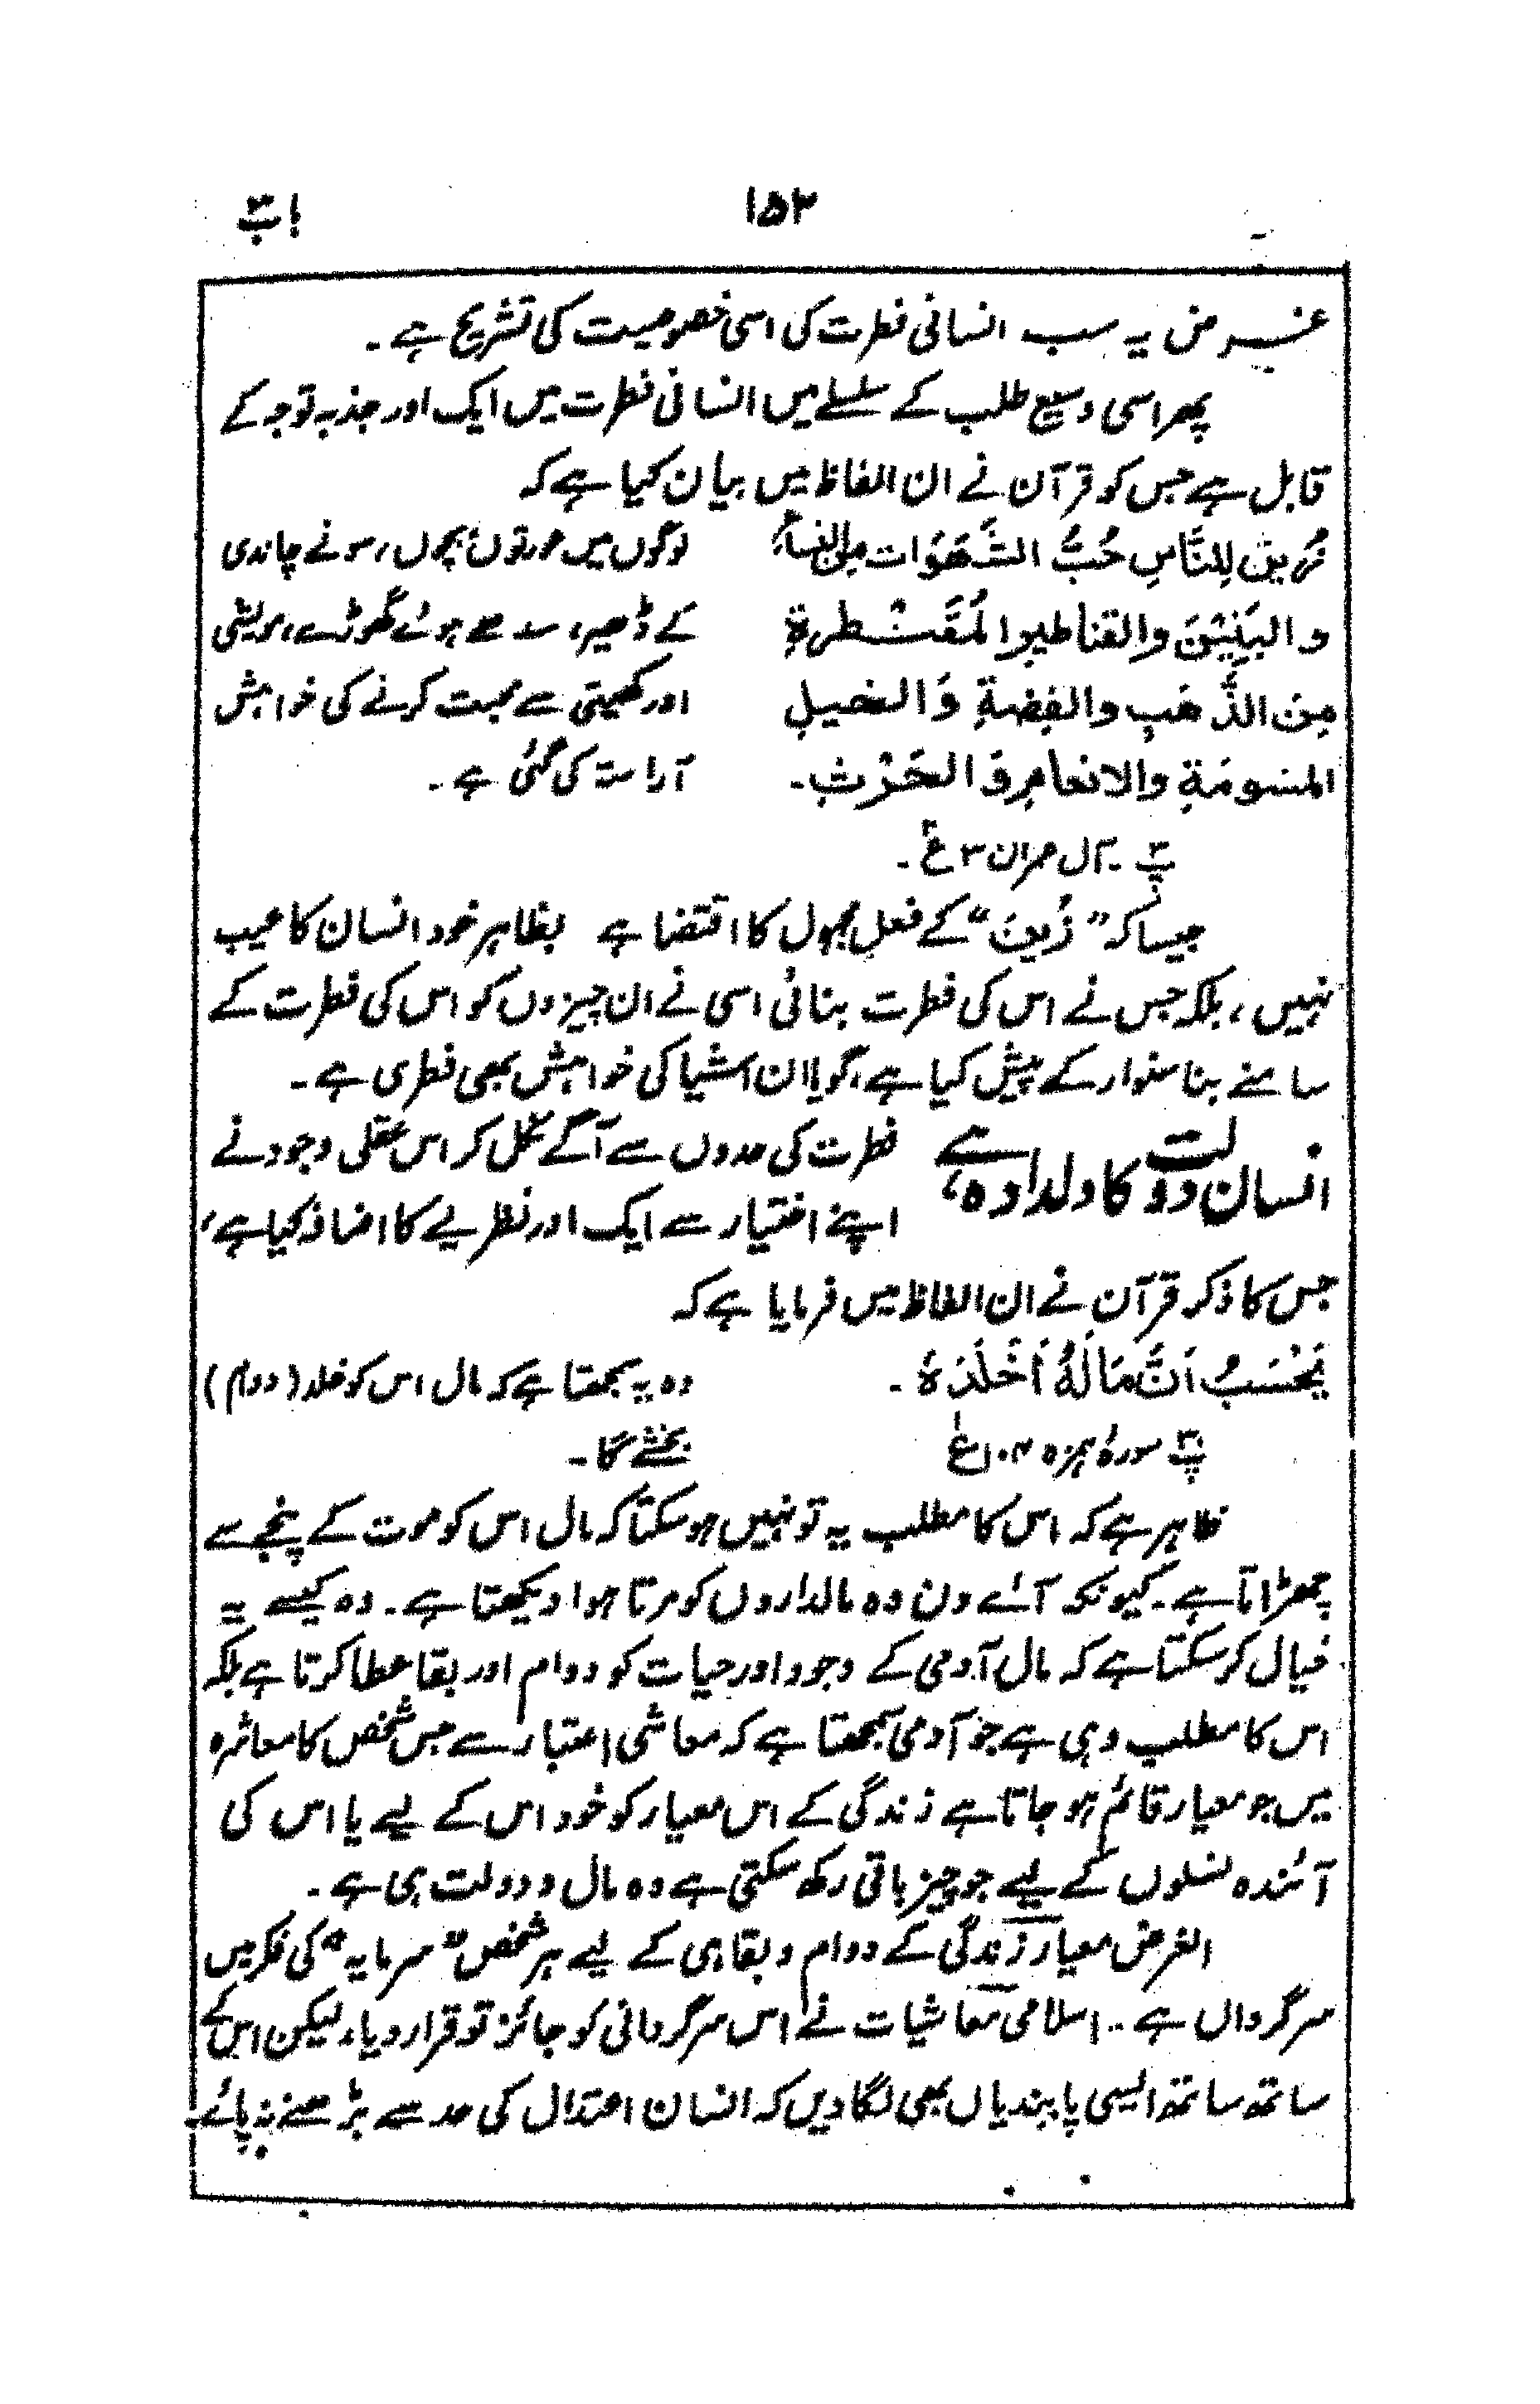 ۱۵۲
باب ۳
غرض یہ سب انسانی فطرت کی اسی خصوصیت کی تشریح ہے۔
پھر اسی وسیع طلب کے سلسلے میں انسانی فطرت میں ایک اور جذبہ توجہ کے
قابل ہے جس کو قرآن نے ان الفاظ میں بیان کیا ہے کہ
زُیِّنَ لِلنَّاسِ حُبُّ الشَّهَوَات مِنَ النِّسَاءِ
والبَنِیْنَ والقناطیرِ المُقَنْطرةِ
مِنَ الذَّهَبِ والفِضةِ وَالخیلِ
المسَومَةِ والانعامِ وَالحَرْثِ۔
پ۳ ۔ آل عمران ۳ ع۲ ۔
لوگوں میں عورتوں، بچوں، سونے چاندی
کے ڈھیر، سدھے ہوئے گھوڑے، مویشی
اور کھیتی سے محبت کرنے کی خواہش
آراستہ کی گئی ہے۔
جیسا کہ ”زُیِّنَ“ کے فعلِ مجہول کا اقتضا ہے بظاہر خود انسان کا عیب
نہیں، بلکہ جس نے اس کی فطرت بنائی اسی نے ان چیزوں کو اس کی فطرت کے
سامنے بنا سنوار کے پیش کیا ہے، گویا ان اشیا کی خواہش بھی فطری ہے۔
انسان دولت کا دلدادہ ہے،
فطرت کی حدوں سے آگے نکل کر اس عقلی وجود نے
اپنے اختیار سے ایک اور نظریے کا اضافہ کیا ہے،
جس کا ذکر قرآن نے ان الفاظ میں فرمایا ہے کہ
یَحْسَبُ اَنَّ مَالَهُ اَخْلَدَهُ ۔
پ۳۰ سورۂ ہمزہ ۱۰۴ ع۱
وہ یہ سمجھتا ہے کہ مال اس کو خلد (دوام)
بخشے گا۔
ظاہر ہے کہ اس کا مطلب یہ تو نہیں ہو سکتا کہ مال اس کو موت کے پنجے سے
چھڑاتا ہے۔ کیونکہ آئے دن وہ مالداروں کو مرتا ہوا دیکھتا ہے۔ وہ کیسے یہ
خیال کر سکتا ہے کہ مال آدمی کے وجود اور حیات کو دوام اور بقا عطا کرتا ہے بلکہ
اس کا مطلب وہی ہے جو آدمی سمجھتا ہے کہ معاشی اعتبار سے جس شخص کا معاشرہ
میں جو معیار قائم ہو جاتا ہے زندگی کے اس معیار کو خود اس کے لیے یا اس کی
آئندہ نسلوں کے لیے جو چیز باقی رکھ سکتی ہے وہ مال و دولت ہی ہے۔
الغرض معیار زندگی کے دوام و بقا ہی کے لیے ہر شخص ”سرمایہ“ کی فکر میں
سرگرداں ہے۔ اسلامی معاشیات نے اس سرگردانی کو جائز تو قرار دیا، لیکن اس کے
ساتھ ساتھ ایسی پابندیاں بھی لگا دیں کہ انسان اعتدال کی حد سے بڑھنے نہ پائے۔